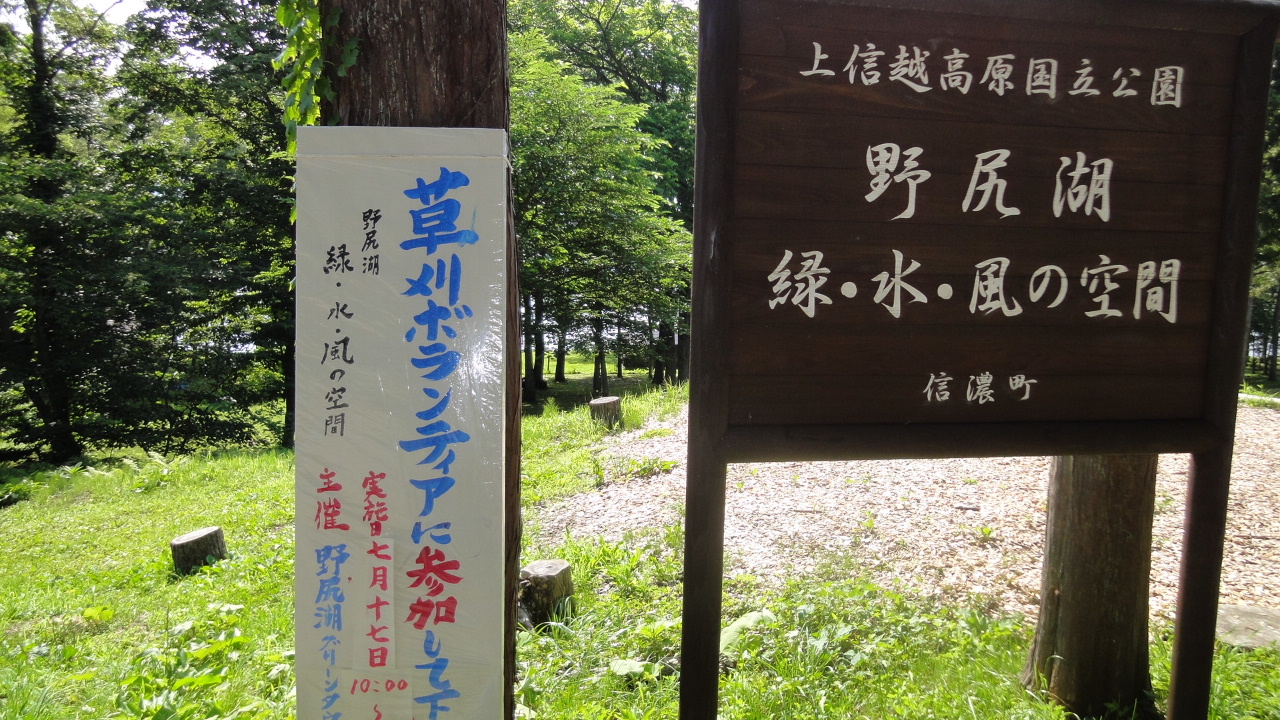 草刈ボランティアに参加して下
野尻湖
緑・水・風の空間
実施日七月十七日
10:00
~
主催 野尻湖グリーンタウ
上信越高原国立公園
野尻湖
緑・水・風の空間
信濃町